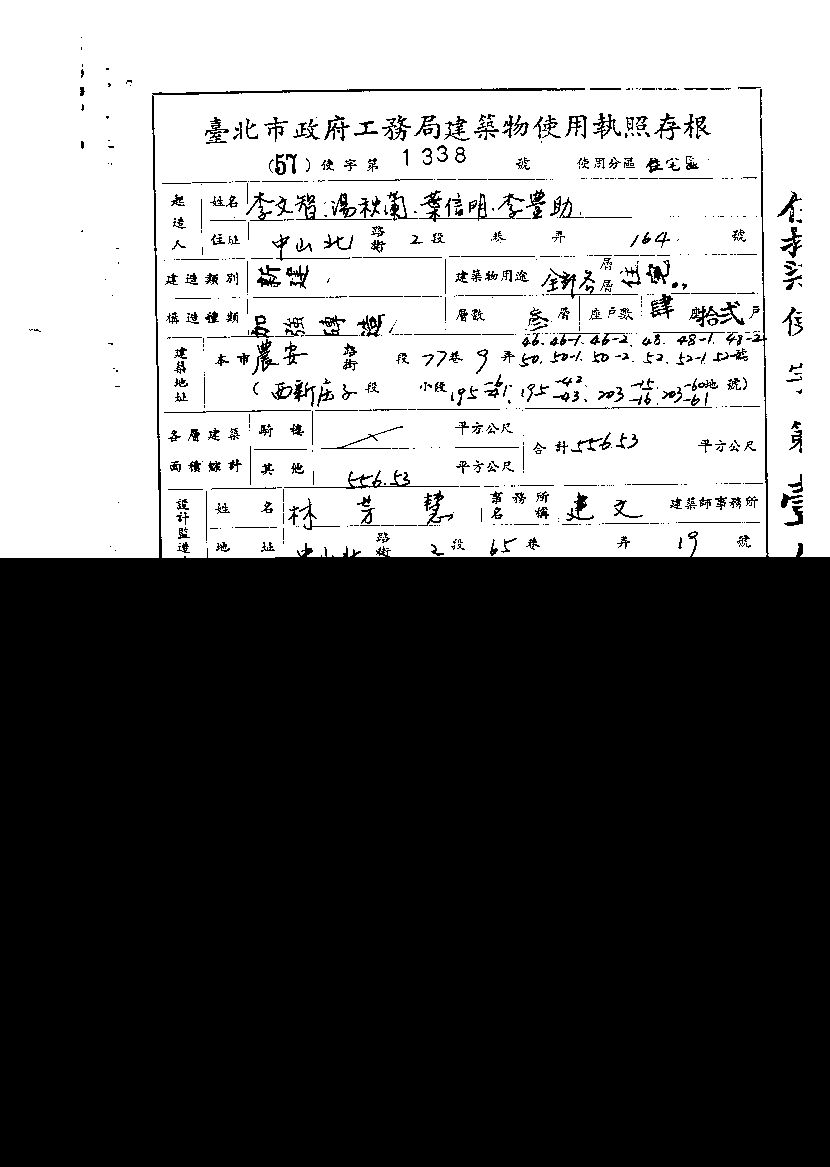 臺北市政府工務局建築物使用執照存根
(57)使字第 1338 號 使用分區 住宅區
起造人 姓名 李文智.湯秋蘭.葉信明.李豐助.
住址 中山北 路街 2 段 巷 弄 164 號
建造類別 新建 建築物用途 全部各 層層 住宅
構造種類 加強磚造 層數 叁 層 座戶數 肆 座 拾弍 戶
46. 46-1. 46-2. 48. 48-1. 48-2
建築地址 本市 農安 路街 段 77 巷 9 弄 50. 50-1. 50-2. 52. 52-1 52-2 號
(西新庄子 段 小段 195 195 -42 -43. 203 -15 -16 203 -60 -61 地號)
各層建築面積總計 騎樓 平方公尺 合計 556.53 平方公尺
其他 556.53 平方公尺
設計監造 姓名 林芳慧 事務所名稱 建文 建築師事務所
地址 中山北 路街 2 段 65 巷 弄 19 號